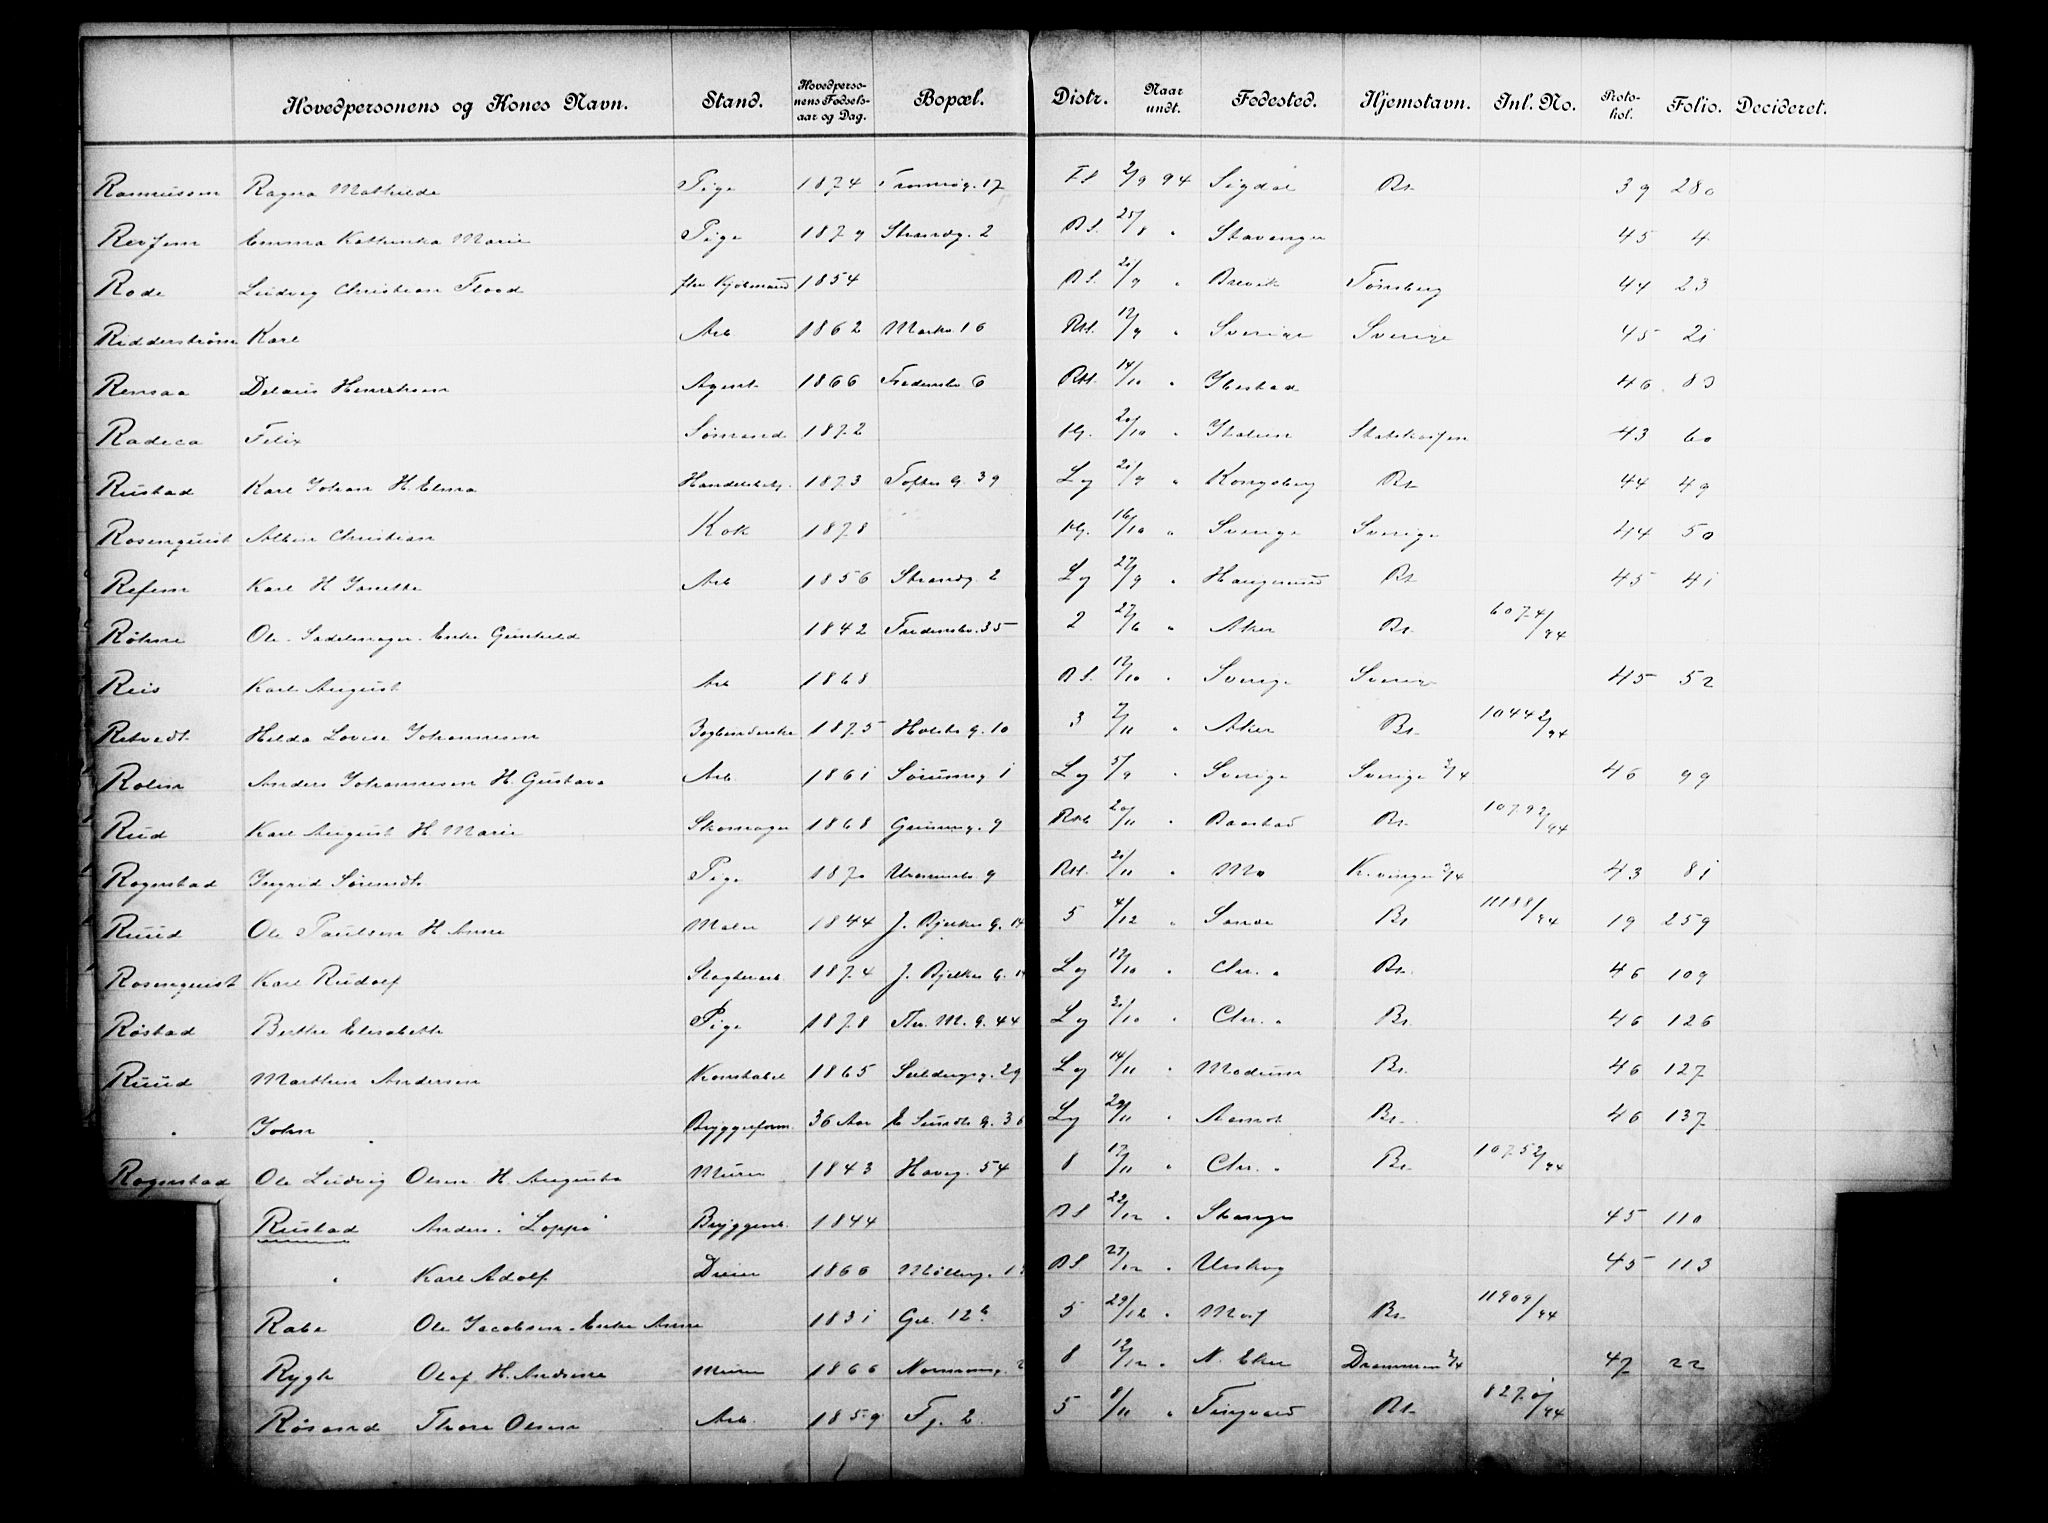 Hovedpersonens og Kones Navn. Stand. Hovedperso-nens Fødsels-aar og Dag. Bopæl. Distr. Naar undt. Fødested. Hjemstavn. Inl. No. Proto-kol. Folio. Decideret.
Rasmussen Ragna Mathilde Pige 1874 Tromsøg. 17 2/9 94 Sigdal Bt. 39 280
Refsem Emma Kathinka Marie Pige 1879 Strandg. 2 BS. 25/8 " Stavanger 45 4
Rode Ludvig Christian Flood fhv. Kjøbmand 1854 BS. 21/9 " Brevik Tønsberg 44 23
Ridderstrøm Karl Arb 1862 Markv. 16 RM. 12/9 " Sverige Sverige 45 21
Remsaa Henriksen Agent 1866 Fredensbv 6 RM. 14/10 " Ibestad 46 83
Radeca Felix Sømand 1872 20/10 " Italien Statskassen 43 60
Rustad Karl Johan H. Elina 1873 Toftes G. 39 Lg 21/9 " Kongsberg Bt. 44 49
Rosenquist Albin Christian Kok 1878 16/10 " Sverige Sverige 44 50
Refsem Karl H Janette Arb 1856 Strandg. 2 Lg 27/9 " Haugesund Bt 45 41
Røhne Ole Sadelmager Enke Gunhild 1842 Fredensbv. 35 2 27/6 " Aker Bt. 6074/94
Reis Karl August Arb 1868 BS. 17/10 " Sverige Sverige 45 52
Retvedt Hilda Lovise Johannesen Bogbinderske 1875 Holsts G. 10 3 7/11 " Aker Bt. 10442/94
Rolin Anders Johannesen H. Gustava Arb 1861 Sørumsg 1 Lg 5/9 " Sverige Sverige 3/4 46 99
Rud Karl August H Marie Skomager 1868 Grünerg. 9 20/11 " Baastad Bt. 10792/94
Rogenstad Ingrid Sørensdt. Pige 1870 Uranienb. 9 RM. 21/11 " Mo K.vinger 3/4 43 81
Ruud Ole Paulsen H Anne Maler 1844 J. Bjelkes G. 14 5 4/12 " Sande Bt 11188/94 19 259
Rosenquist Karl Rudolf Slagterarb. 1874 J. Bjelkes G. 14 Lg 17/10 " Chr. " Bt. 46 109
Røstad Berthe Elisabeth Pige 1878 Thv. M. G. 44 Lg 31/10 " Chr. " Bt. 46 126
Ruud Marthin Andersen Konstabel 1865 29 Lg 14/11 " Modum Bt. 46 127
" John Bryggeform. 36 Aar E Sundts G. 36 Lg 29/11 " Aamot Bt. 46 137
Rogenstad Ole Ludvig Olsen H. Augusta Murer 1843 Haveg. 54 8 17/11 " Chr. " Bt. 10752/94
Rustad Anders "Loppa" Bryggerarb. 1844 BS 22/12 " Stange 45 110
" Karl Adolf Dreier 1866 Møllerg. BS 27/12 " Urskog 45 113
Rabe Ole Jacobsen Enke Anne 1831 Grl. 12b 5 29/12 " Bt. 11909/94
Rygh Olaf H. Andrine Murer 1866 8 12/12 " N. Eker Drammen 3/4 47 22
Røsand Thore Olsen Arb. 1859 Tg. 2. 5 8/11 " Tingvold Bt. 8270/94